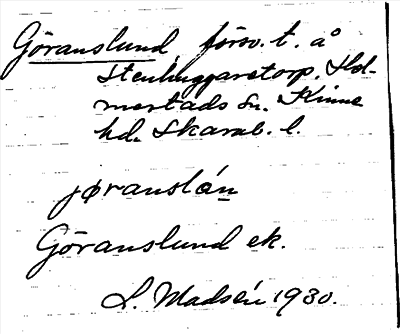 Göranslund försv. t. å
Stenhuggaretorp. Hol-
mestads sn. Kinne
hd. Skarab. l.
jøranslán
Göranslund ek.
L. Madsén 1930.